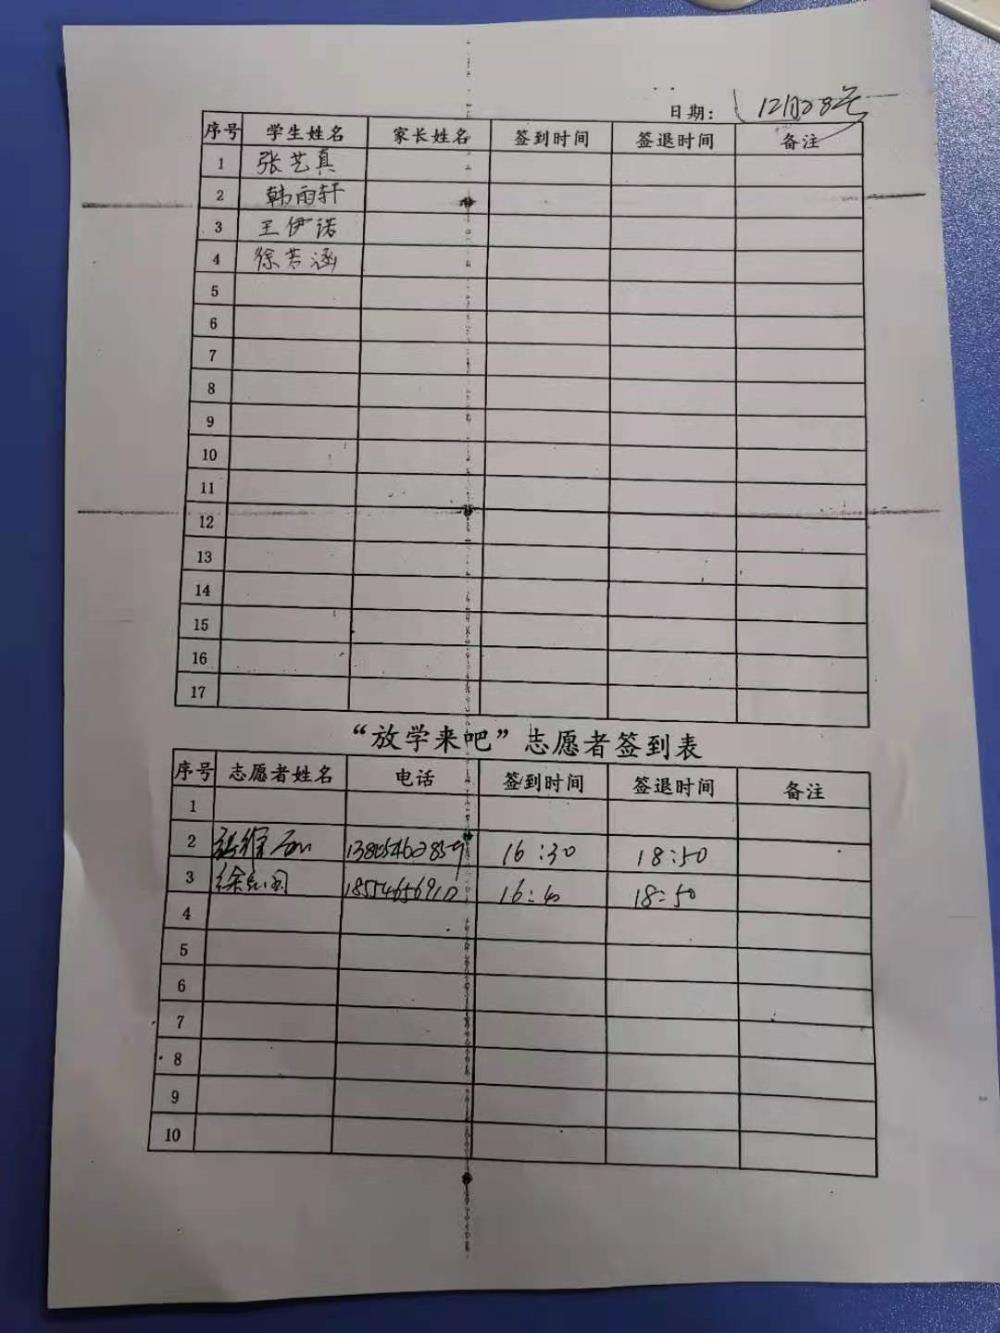 日期: 12月28号
序号 学生姓名 家长姓名 签到时间 签退时间 备注
1 张艺真
2 韩雨轩
3 王伊诺
4 徐若涵
5
6
7
8
9
10
11
12
13
14
15
16
17
“放学来吧”志愿者签到表
序号 志愿者姓名 电话 签到时间 签退时间 备注
1
2 16:30 18:50
3 18554656910 16:40 18:50
4
5
6
7
8
9
10